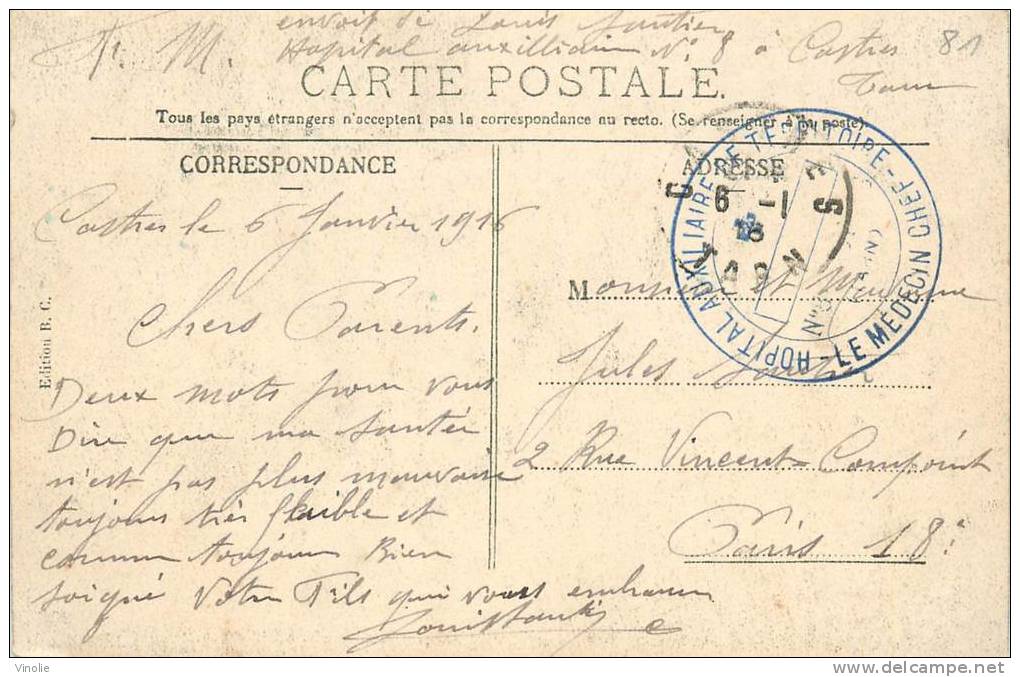 F. M.
envoit de Louis
Hopital auxilliaire No. 8 à Castres 81
Tarn
CARTE POSTALE.
Tous les pays étrangers n'acceptent pas la correspondance au recto. (Se renseigner à la poste).
CORRESPONDANCE
ADRESSE
HOPITAL AUXILIAIRE DE TERRITOIRE - LE MÉDECIN CHEF -
6 -1
16
TARN
Castres le 6 Janvier 1916
Chers Parents.
Deux mots pour vous
Dire que ma santée
n'est pas plus mauvaise
toujours très flaible et
comme toujours Bien
soigné Votre Fils qui vous embrasse
Monsieur et Madame
Jules
2 Rue Vincent Compoint
Paris 18e
Edition B. C.
Vinolie
delcampe.net